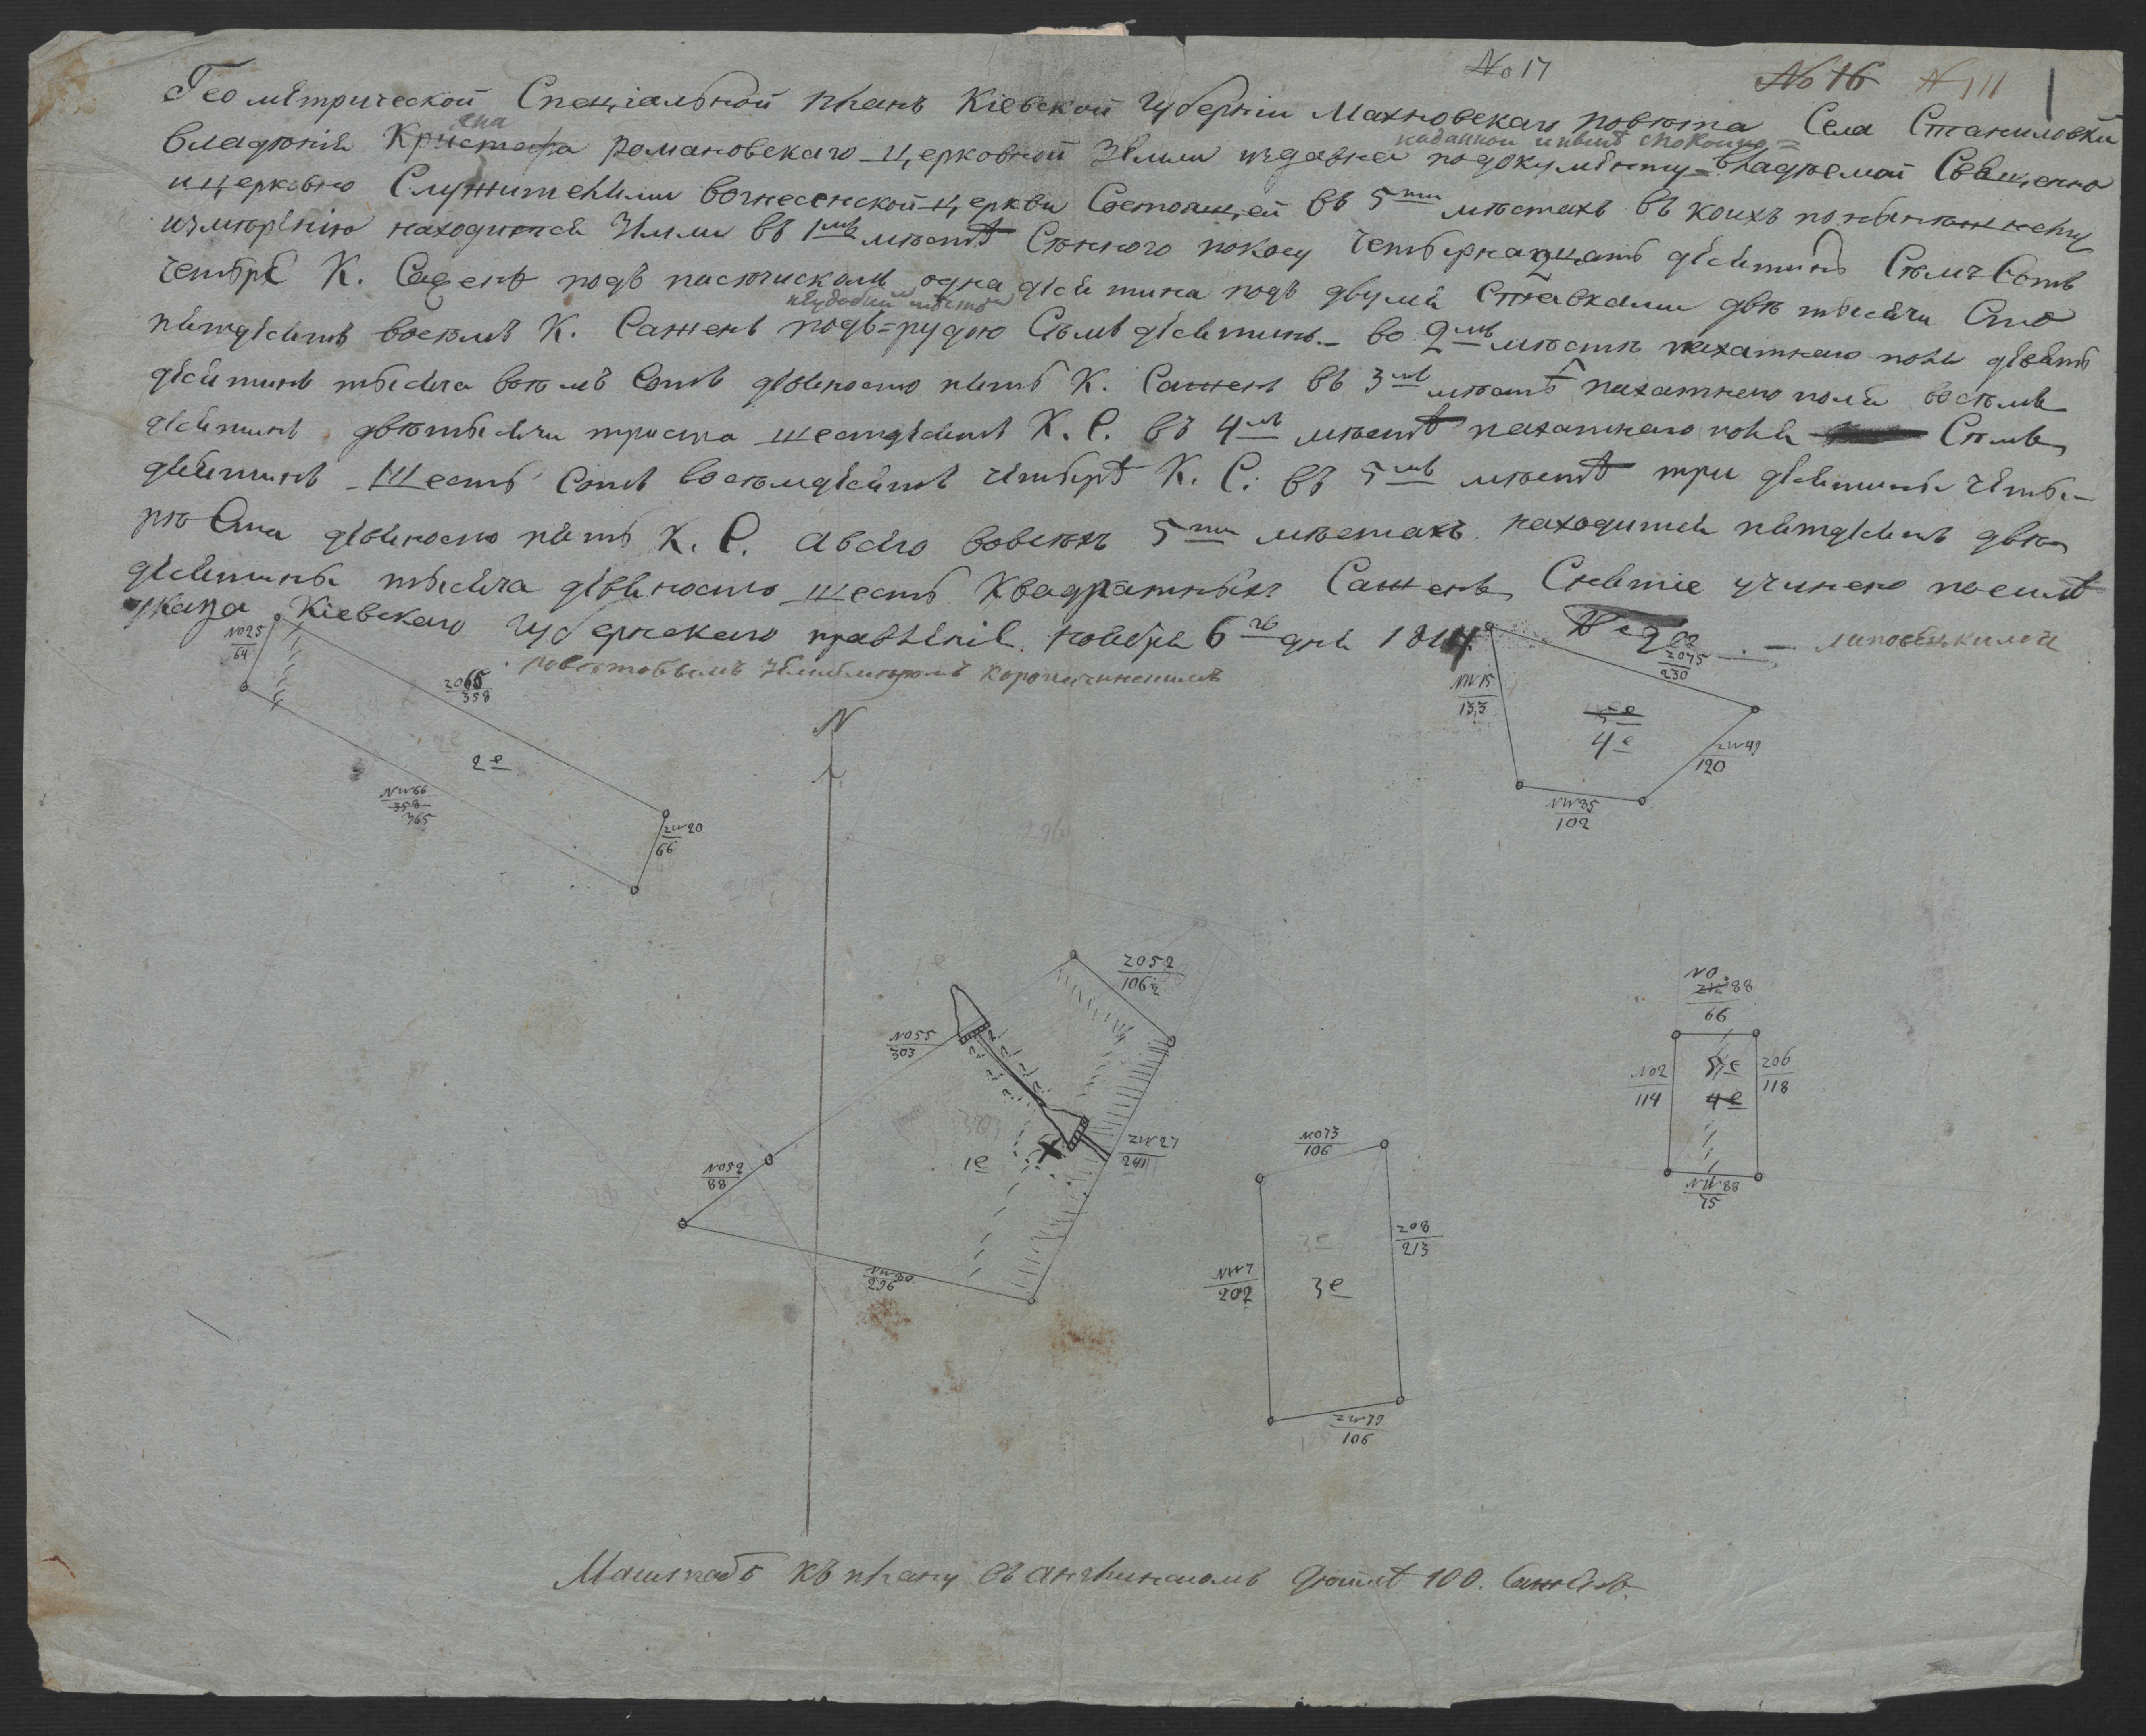 No 17
No 16 N 111
Геометрической Специальной планъ Кіевской Губерніи Махновскаго повѣта Села Станиловки
владѣнія Кристофа Романовскаго церковной Земли издавна наданной подокументу владѣемой Священно
ицерковно Служителями вознесенской церкви Состоящей въ 5ти мѣстахъ въ коихъ понынѣшнему
измѣренію находится Земли въ 1мъ мѣстѣ Сѣнного покосу четырнадцать десятинъ Сѣмъ Сотъ
четыре К. Сажень подъ пасѣчискомъ одна десятина подъ двумя Ставками двѣ тысячи Сто
пятдесятъ восѣмъ К. Сажень неудобной подъ рудою Сѣмъ десятинъ. во 2мъ мѣстѣ пахатнаго поля девять
десятинъ тысяча восѣмъ Сотъ девяносто пять К. Сажень въ 3мъ мѣстѣ пахатнего поля восѣмъ
десятинъ двѣтысячи триста шестдесятъ К. С. въ 4мъ мѣстѣ пахатнаго поля Сѣмъ
десятинъ Шесть Сотъ восѣмдесятъ четыре К. С. въ 5мъ мѣстѣ три десятины четы-
рѣ Ста девяносто пять К. С. авсего вовсѣхъ 5ти мѣстахъ находится пятдесятъ двѣ
десятины тысяча девяносто шесть Квадратныхъ Сажень Снятіе учинено посилѣ
указа Кіевскаго Губернскаго правленія ноября 6го дня 1814.
повѣтовымъ Землемѣромъ
NO25
64
2065
358
2е
NW66
358
365
ZW20
66
N
NW15
133
ZO75
230
4е
ZW49
120
NW85
102
ZO52
106½
NO55
303
NO52
88
1е
ZW27
241
NW80
296
NO73
106
ZO8
213
NW7
202
3е
ZW79
106
NO
88
66
NO2
114
5е
4е
ZO6
118
NW88
75
Машпабъ къ плану въ английскомъ дюймѣ 100. Сажень